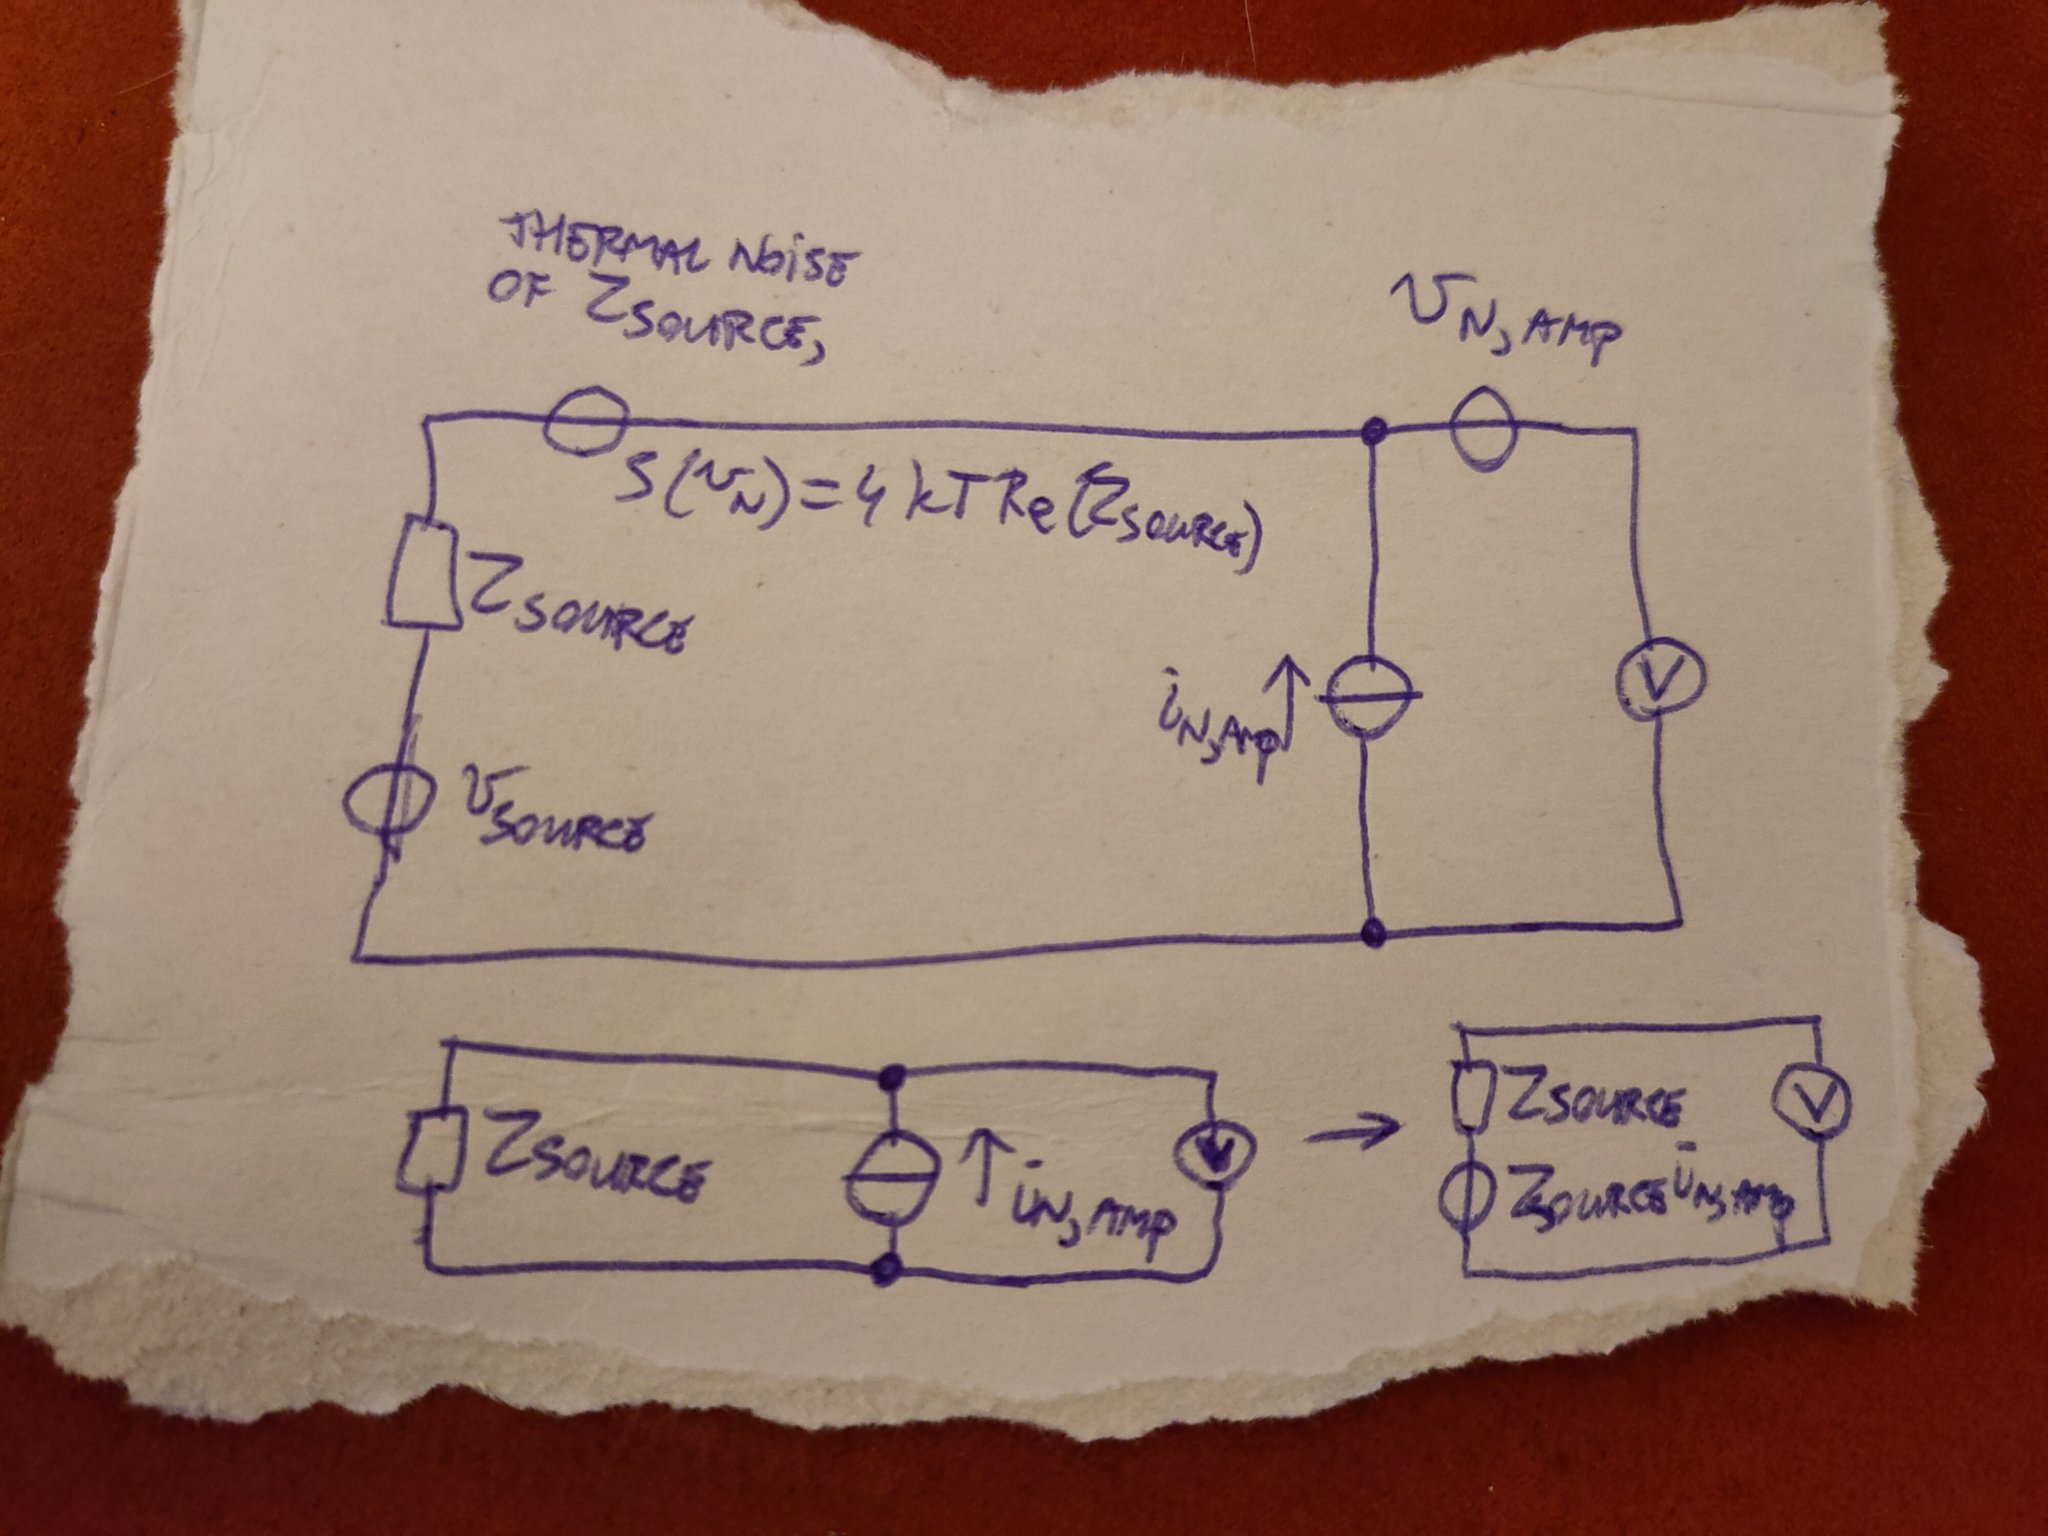 THERMAL NOISE
OF ZSOURCE,
vN, AMP
S(vN) = 4 kT Re(ZSOURCE)
ZSOURCE
iN, AMP ↑
V
vSOURCE
ZSOURCE
↑ iN, AMP
V
→
ZSOURCE
V
ZSOURCE iN, AMP